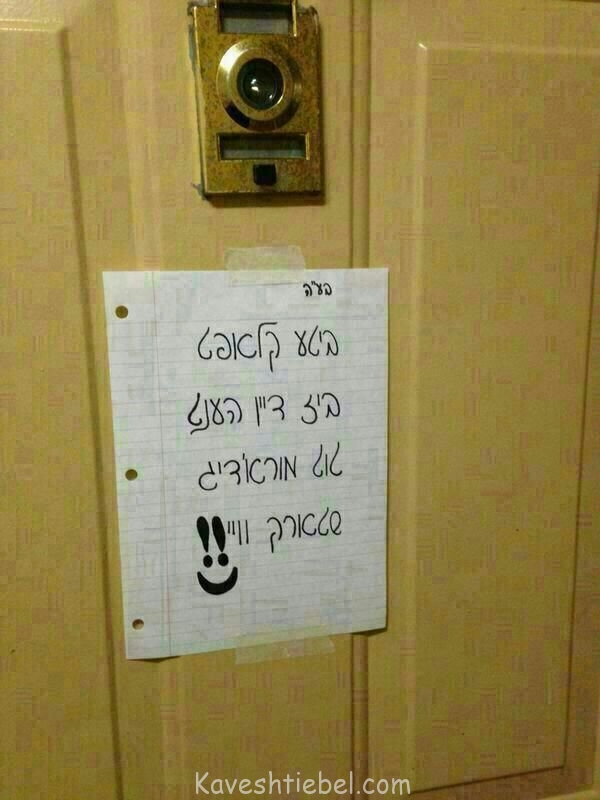 בע"ה
ביטע קלאפט
ביז דיין הענט
טוט מורא'דיג
שטארק וויי!!
Kaveshtiebel.com